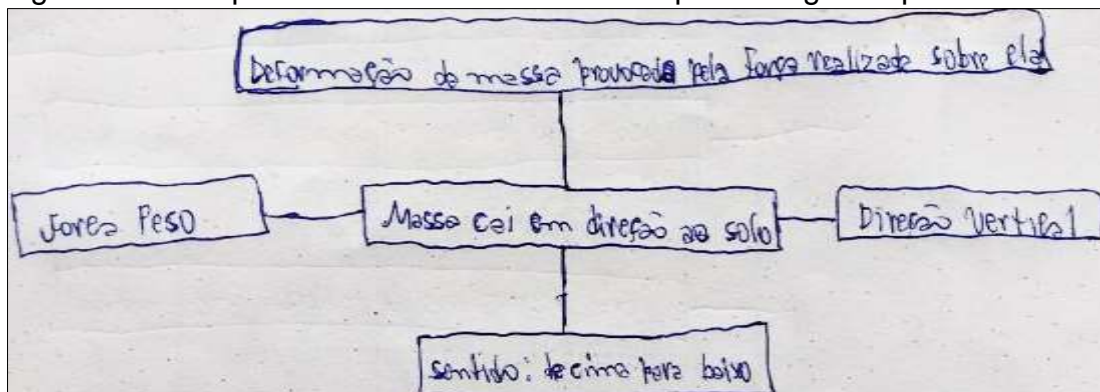 Deformação de massa provocada pela força realizada sobre ela
Força Peso
Massa cai em direção ao solo
Direção Vertical
sentido: de cima para baixo